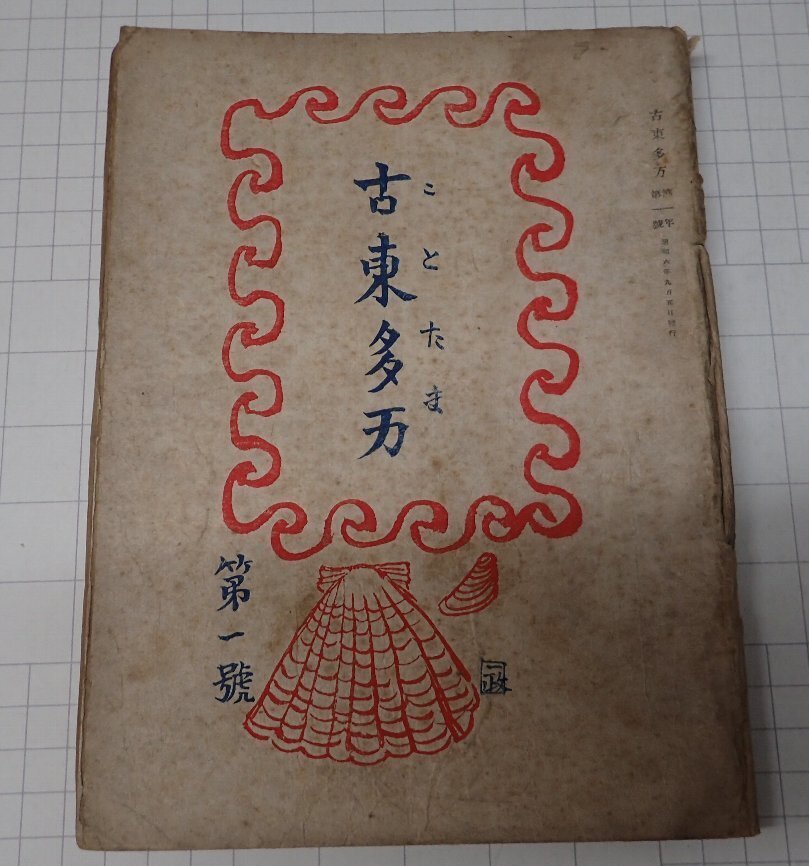 古東多万 第一年
第一號
昭和六年九月五日發行
ことたま
古東多万
第一號